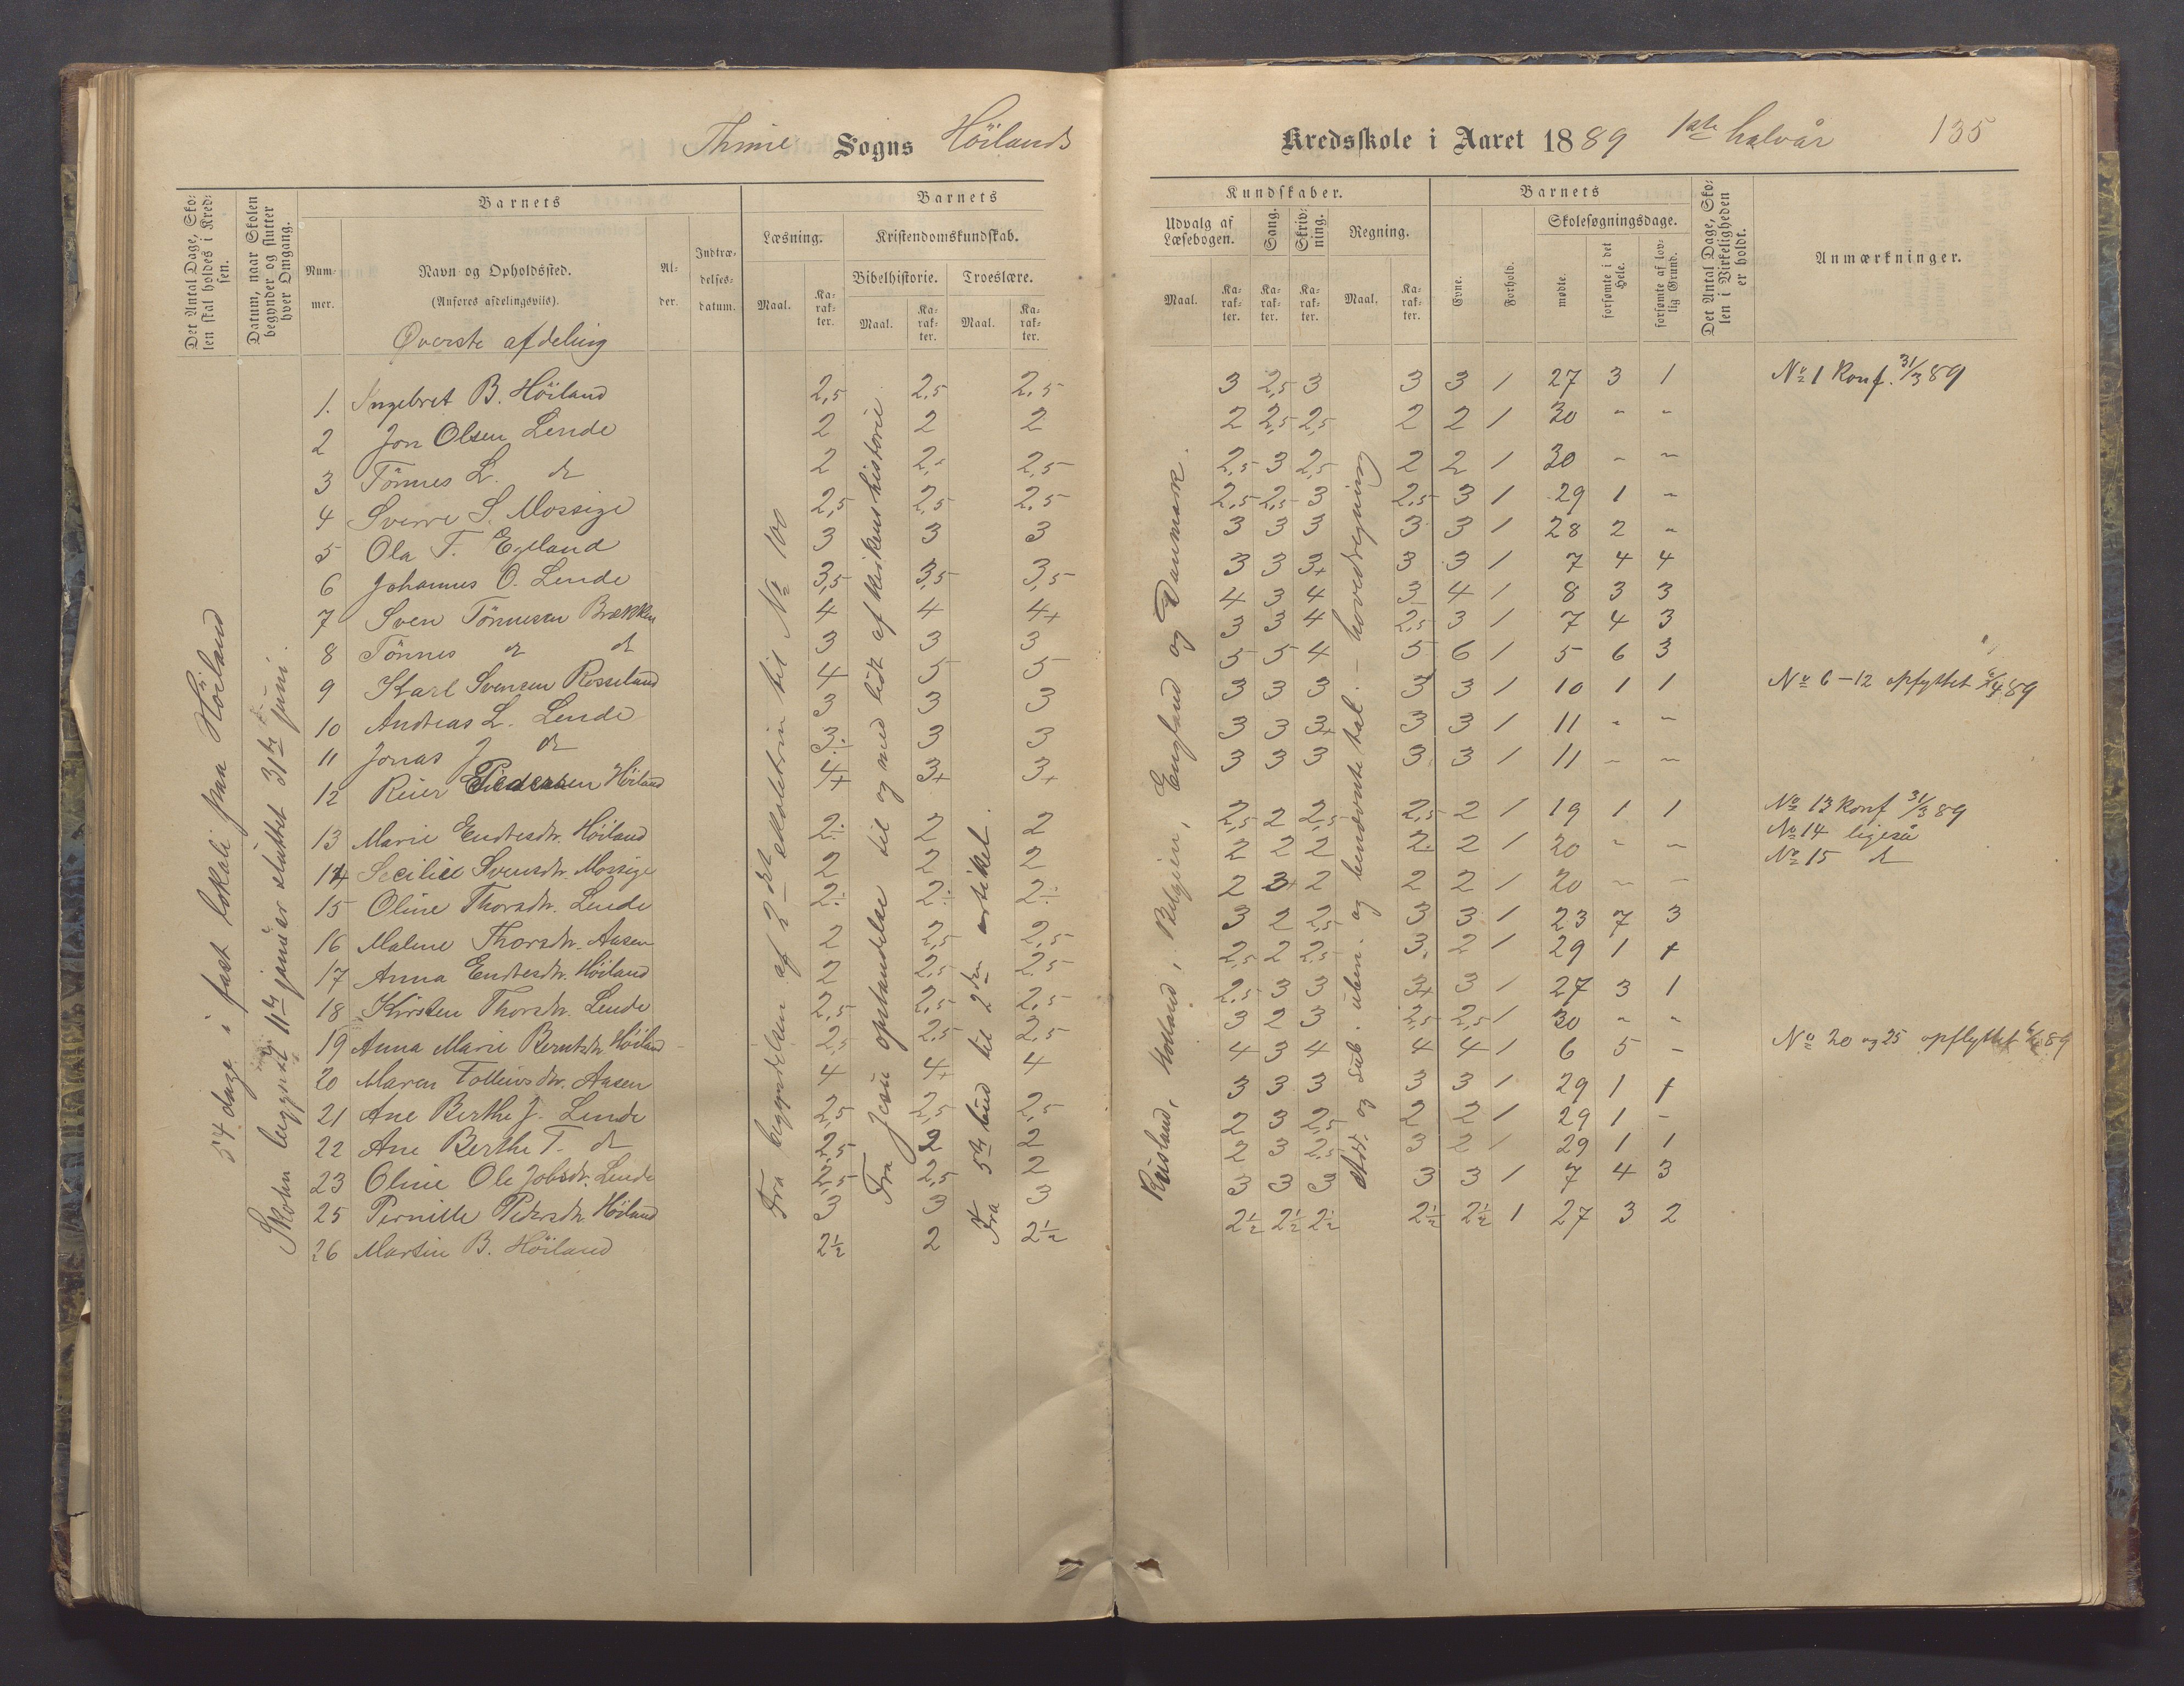 Thime Sogns Höilands
Kredsskole i Aaret 1889 1ste halvår 135
Det Antal Dage, Skolen skal holdes i Kredsen.
Datum, naar Skolen begynder og slutter hver Omgang.
Barnets
Nummer.
Navn og Opholdssted.
(Anføres afdelingsviis).
Alder.
Indtrædelsesdatum.
Barnets
Læsning.
Maal.
Karakter.
Kristendomskundskab.
Bibelhistorie.
Maal.
Karakter.
Troeslære.
Maal.
Karakter.
Kundskaber.
Udvalg af Læsebogen.
Maal.
Karakter.
Sang.
Karakter.
Skrivning.
Karakter.
Regning.
Maal.
Karakter.
Barnets
Evne.
Forhold.
Skolesøgningsdage.
mødte.
forsømte i det Hele.
forsømte af lovlig Grund.
Det Antal Dage, Skolen i Virkeligheden er holdt.
Anmærkninger.
Øverste afdeling
54 dage i fast lokali paa Höiland
Skolen begyndt 11te januar sluttet 31te juni.
Fra begyndelsen af 2det skoletrin til No 100
Fra Jesu opstandelse til og med lidt af kirkens historie
Fra 5te bud til 2den artikel.
Rusland, Holland, Belgien, England og Danmark.
Add. og sub. uben. og benævnte tal. – hovedregning
1. Ingebret B. Höiland 2,5 2,5 2,5 3 2,5 3 3 3 1 27 3 1 No 1 Konf. 31/3 89
2 Jon Olsen Lende 2 2 2 2 2,5 2,5 2 2 1 30 - -
3 Tönnes L. do 2 2,- 2,5 2,5 3 2,5 2 2 1 30 - -
4 Sverre S. Mossige 2,5 2,5 2,5 2,5 2,5 3 2,5 3 1 29 1 -
5 Ola T. Egeland 3 3 3 3 3 3 3 3 1 28 2 -
6 Johannes O. Lende 3,5 3,5 3,5 3 3 3+ 3 3 1 7 4 4
7 Sven Tönnesen Brekken 4 4 4+ 4 3 4 3 4 1 8 3 3
8 Tönnes do do 3 3 3 3 3 4 2,5 3 1 7 4 3
9 Karl Svensen Rosseland 4 5 5 5 5 4 5 6 1 5 6 3
10 Andreas L. Lende 3 3 3 3 3 3 3 3 1 10 1 1 No 6–12 opflyttet 89
11 Jonas J do 3÷ 3 3 3 3 3+ 3 3 1 11 - -
12 Reier Pedersen Höiland 4+ 3+ 3+ 3 3 3 3 3 1 11 - -
13 Marie Endresdtr. Höiland 2÷ 2 2 2,5 2 2,5 2,5 2 1 19 1 1 No 13 Konf 31/3 89
14 Secilie Svensdtr. Mossige 2 2 2 2 2 2 2 2 1 20 - - No 14 ligeså
15 Oline Thorsdtr. Lende 2÷ 2÷ 2÷ 2 3+ 2 2 2 1 20 - - No 15 do
16 Malene Thorsdtr. Aasen 2 2,5 2,5 3 2 2,5 3 3 1 23 7 3
17 Anna Endresdtr. Höiland 2 2,5 2,5 2,5 2 2,5 3 2 1 29 1 1
18 Kirsten Thorsdtr. Lende 2,5 2,5 2,5 2,5 3 3 3+ 3 1 27 3 1
19 Anna Marie Berntsdtr Höiland 2,5 2,5 2,5 3 2 3 2,5 2,5 1 30 - -
20 Maren Tolleivsdtr. Aasen 4 4+ 4 4 3 4 4 4 1 6 5 - No 20 og 25 opflyttet 89
21 Ane Berthe J. Lende 2,5 2,5 2,5 3 3 3 3 3 1 29 1 1
22 Ane Berthe T. do 2,5 2 2 2 3 2,5 2 2 1 29 1 -
23 Oline Ole Jobsdtr. Lende 2,5 2,5 2 2 3 2,5 3 2 1 29 1 1
25 Pernille Pedersdtr Höiland 3 3 3 3 3 3 3 3 1 7 4 3
26 Martin B. Höiland 2½ 2 2½ 2½ 2½ 2½ 2½ 2½ 1 27 3 2